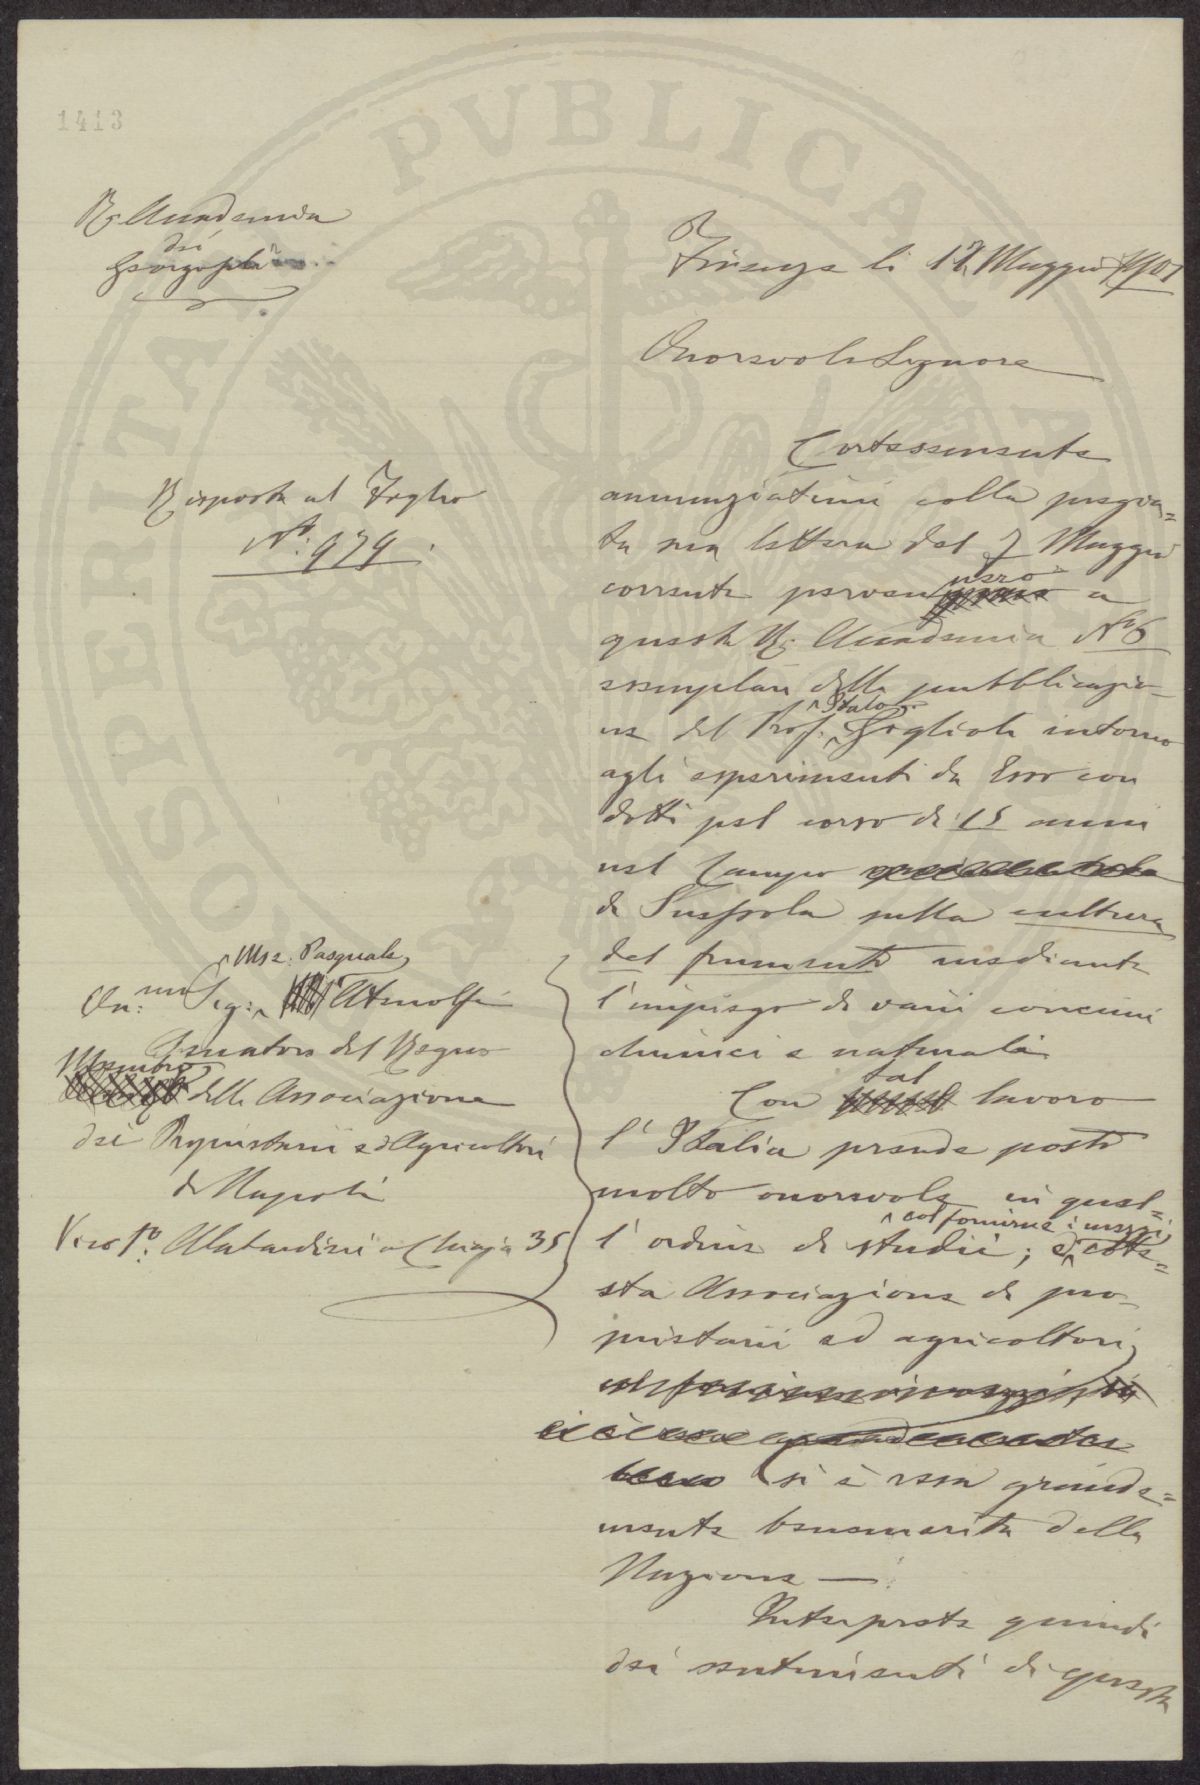 1413
R. Accademia
dei
Georgofili
Firenze li 12 Maggio 1901
Onorevole Signore
Cortesemente
annunziatimi colla pregia=
ta sua lettera del 7 Maggio
corrente pervennero a
questa R. Accademia N° 6
esemplari della pubblicazio-
ne del Prof. Italo Giglioli intorno
agli esperimenti da Esso con
dotti pel corso di 15 anni
nel Campo
di Suessola sulla cultura
del frumento mediante
l'impiego di varii concimi
chimici e naturali
Con tal lavoro
l'Italia prende posto
molto onorevole in quel=
l'ordine di studii; e, col fornirne i mezzi, cote=
sta Associazione di pro-
prietarii ed agricoltori,
si è resa grande=
mente benemerita della
Nazione —
Interprete quindi
dei sentimenti di questa
Risposta al Foglio
N°: 979.
On:mo Sig: Mse. Pasquale Atenolfi
Senatore del Regno
Membro della Associazione
dei Proprietarii ed Agricoltori
di Napoli
Vico 1° Alabardieri a Chiaja 35
PUBLICAE
PROSPERITATI